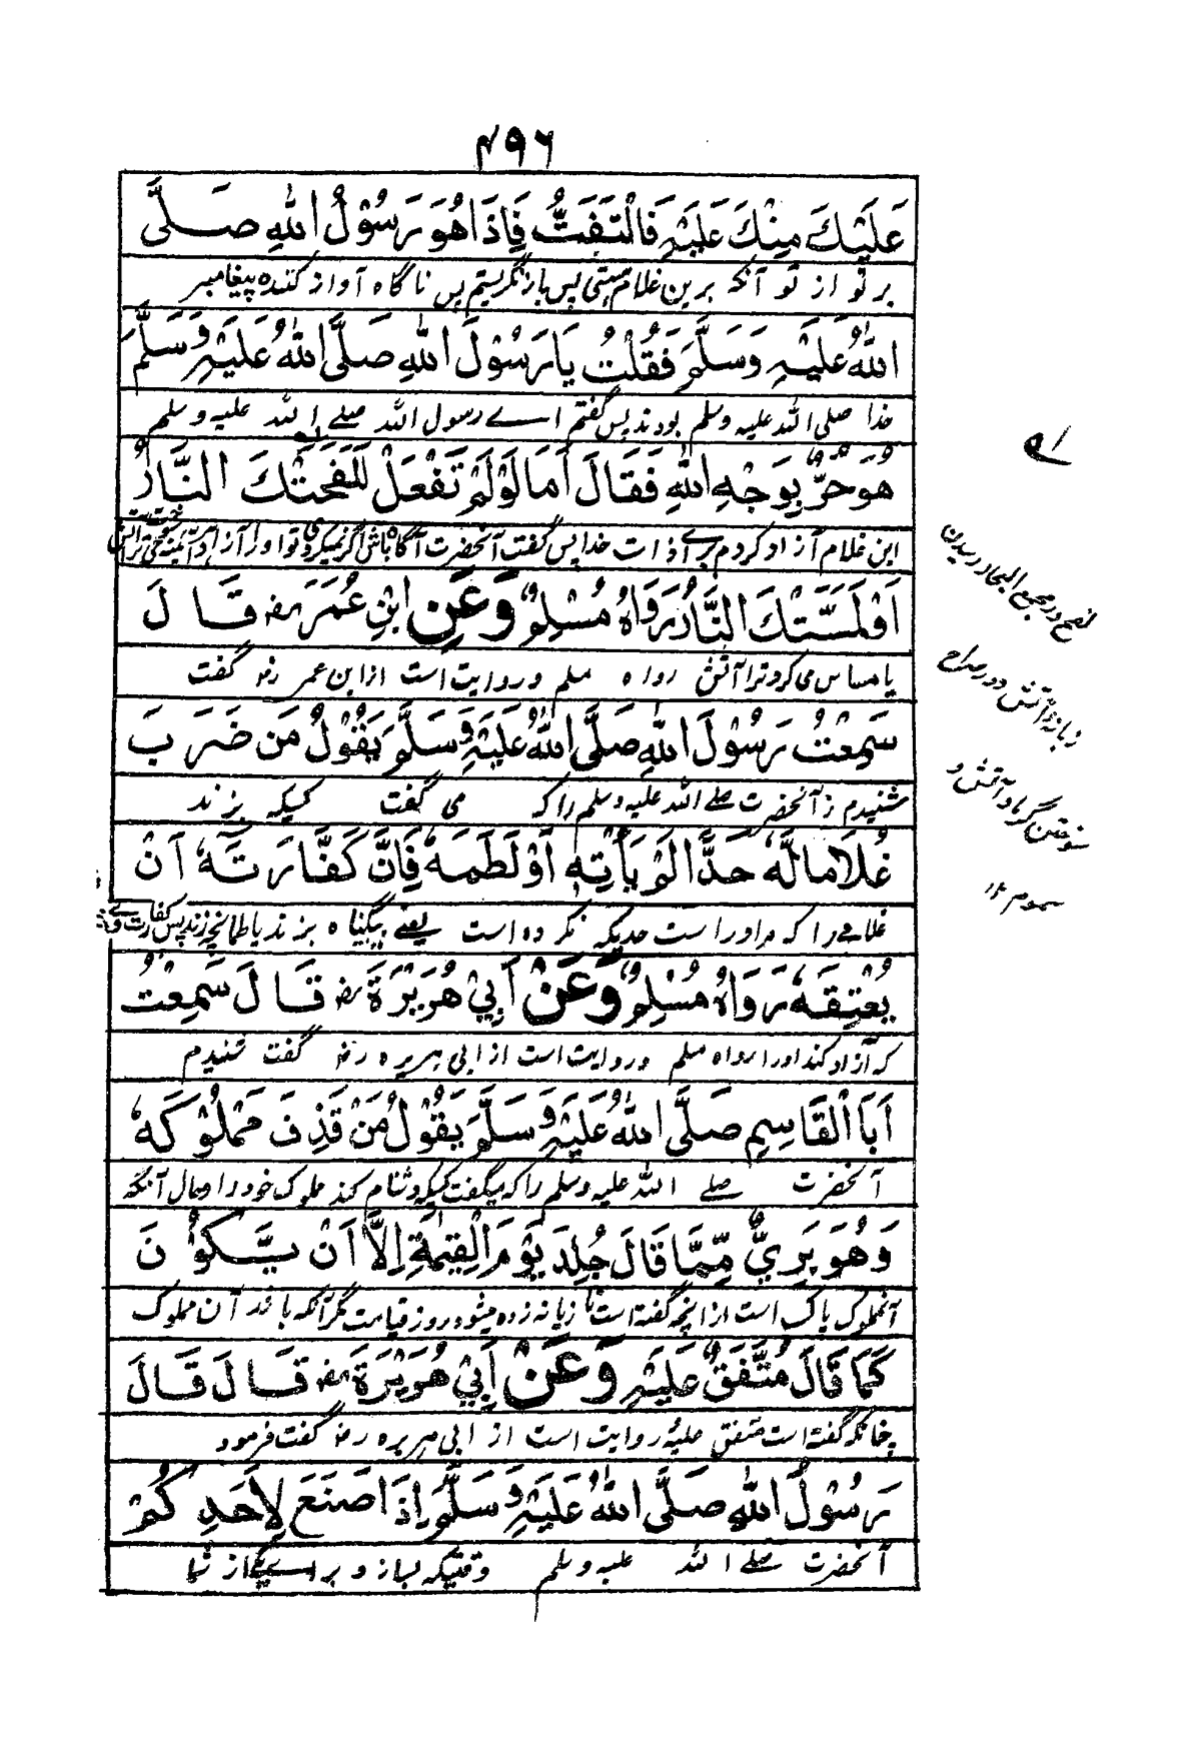 ۴۹۶
عَلَيْكَ مِنْكَ عَلَيْهِ فَالْتَفَتُّ فَاِذَا هُوَ رَسُوْلُ اللهِ صَلَّى
بر تو از تو آنکه برین غلام هستی پس باز نگریستم پس ناگاه آواز کننده پیغامبر
اللهُ عَلَيْهِ وَسَلَّمَ فَقُلْتُ يَا رَسُوْلَ اللهِ صَلَّى اللهُ عَلَيْهِ وَسَلَّمَ
خدا صلی الله علیه وسلم بودند پس گفتم اے رسول الله صلے الله علیه وسلم
هُوَ حُرٌّ بِوَجْهِ اللهِ فَقَالَ اَمَا لَوْ لَمْ تَفْعَلْ لَلَفَحَتْكَ النَّارُ
این غلام آزاد کردم برے ذات خدا پس گفت آنحضرت آگاه باش اگر نمیکردی تو اورا آزاد
اَوْ لَمَسَّتْكَ النَّارُ رَوَاهُ مُسْلِمٌ وَعَنِ ابْنِ عُمَرَ رض قَالَ
یا مساس می کرد ترا آتش رواه مسلم و روایت است از ابن عمر رض گفت
سَمِعْتُ رَسُوْلَ اللهِ صَلَّى اللهُ عَلَيْهِ وَسَلَّمَ يَقُوْلُ مَنْ ضَرَبَ
شنیدم ز آنحضرت صلے الله علیه وسلم راکه می گفت کسیکه بزند
غُلَامًا لَّهٗ حَدًّا لَمْ يَأْتِهٖ اَوْ لَطَمَهٗ فَاِنَّ كَفَّارَتَهٗ اَنْ
غلامے را که مر اوراست حدیکه نکرده است یعنے بیگناه بزند یا طمانچه زند پس کفارت
يُعْتِقَهٗ رَوَاهُ مُسْلِمٌ وَعَنْ اَبِيْ هُرَيْرَةَ رض قَالَ سَمِعْتُ
که آزاد کند اورا رواه مسلم و روایت است از ابی هریره رض گفت شنیدم
اَبَا الْقَاسِمِ صَلَّى اللهُ عَلَيْهِ وَسَلَّمَ يَقُوْلُ مَنْ قَذَفَ مَمْلُوْكَهٗ
آنحضرت صلے الله علیه وسلم راکه میگفت کسیکه دشنام کند مملوک خود را و حال آنکه
وَهُوَ بَرِيٌّ مِّمَّا قَالَ جُلِدَ يَوْمَ الْقِيٰمَةِ اِلَّا اَنْ يَّكُوْنَ
آنمملوک پاک است از انچه گفته است تازیانه زده میشود روز قیامت مگر آنکه باشد آن مملوک
كَمَا قَالَ مُتَّفَقٌ عَلَيْهِ وَعَنْ اَبِيْ هُرَيْرَةَ رض قَالَ قَالَ
چنانکه گفته است متفق علیه روایت است از ابی هریره رض گفت فرمود
رَسُوْلُ اللهِ صَلَّى اللهُ عَلَيْهِ وَسَلَّمَ اِذَا صَنَعَ لِاَحَدِكُمْ
آنحضرت صلے الله علیه وسلم وقتیکه بسازد براے یکے از شما
لفح در مجمع البحار رسیدن
زبانه آتش و در صراح
سوختن گرما و آتش و
سموم ۱۲